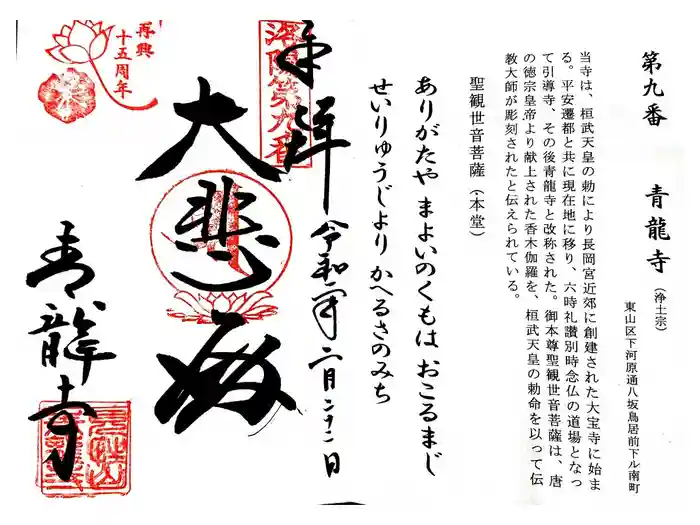 第九番　青龍寺（浄土宗）
東山区下河原通八坂鳥居前下ル南町
当寺は、桓武天皇の勅により長岡宮近郊に創建された大宝寺に始ま
る。平安遷都と共に現在地に移り、六時礼讃別時念仏の道場となっ
て引導寺、その後青龍寺と改称された。御本尊聖観世音菩薩は、唐
の徳宗皇帝より献上された香木伽羅を、桓武天皇の勅命を以って伝
教大師が彫刻されたと伝えられている。
聖観世音菩薩（本堂）
ありがたや まよいのくもは おこるまじ
せいりゅうじより かへるさのみち
奉拝
令和二年二月二十二日
洛陽第九番
大悲殿
青龍寺
再興
十五周年